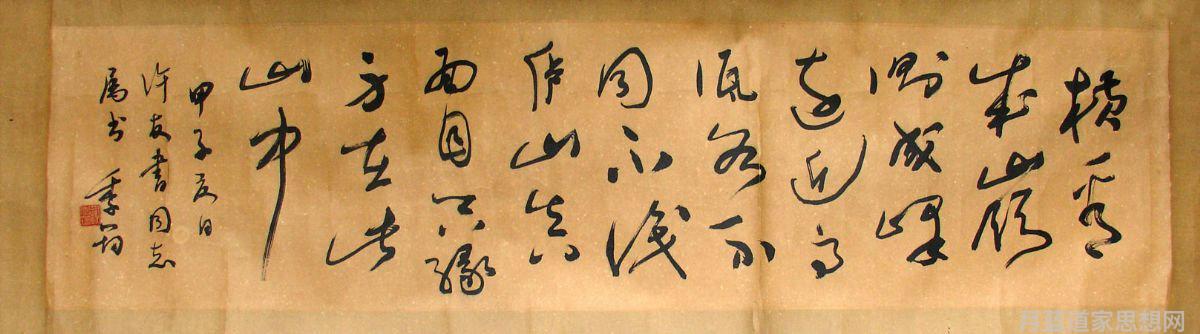 横看
成嶺
側成峰
遠近高
低各不
同不識
庐山真
面目只緣
身在此
山中
甲子夏日
许友書同志
属书 季
道家思想网